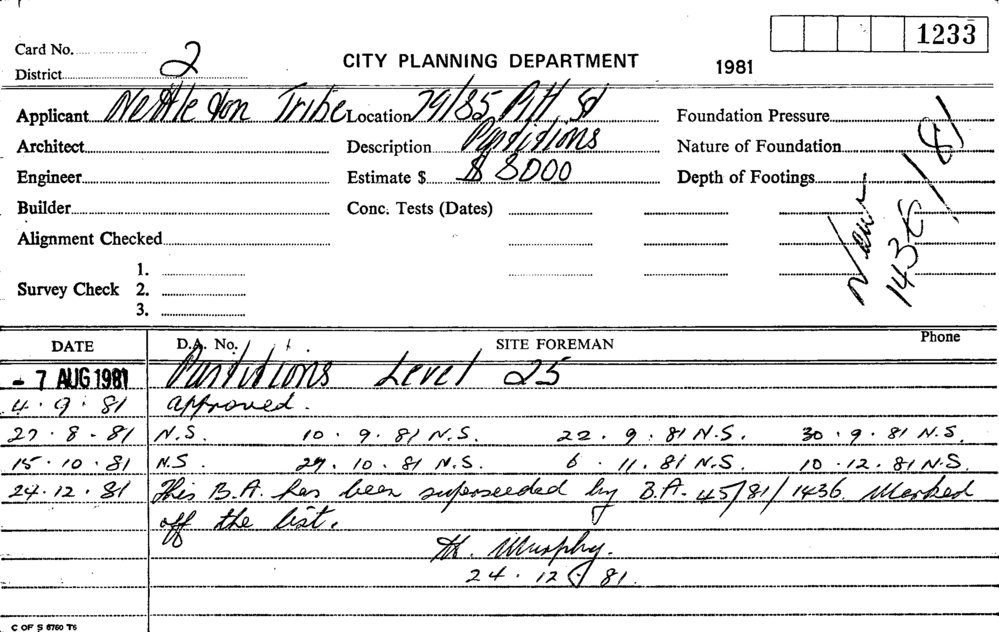 1233
Card No.
District 2
CITY PLANNING DEPARTMENT 1981
Applicant Nettleton Tribe Location 79/85 Pitt St Foundation Pressure
Architect Description Partitions Nature of Foundation
Engineer Estimate $ $ 8000 Depth of Footings
Builder Conc. Tests (Dates)
Alignment Checked
1.
Survey Check 2.
3.
1436/81
DATE D.A. No. SITE FOREMAN Phone
- 7 AUG 1981 Partitions Level 25
4.9.81 approved.
27.8.81 N.S. 10.9.81 N.S. 22.9.81 N.S. 30.9.81 N.S.
15.10.81 N.S. 27.10.81 N.S. 6.11.81 N.S. 10.12.81 N.S.
24.12.81 This B.A. has been superseeded by B.A. 45/81/1436. Marked
off the list.
Murphy.
24.12.81.
C OF S 6760 T6